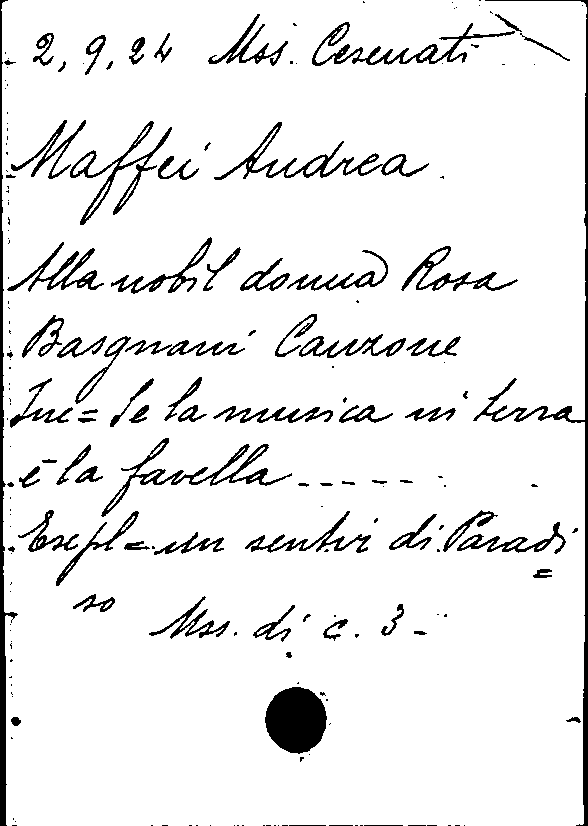 2, 9, 24 Mss. Cesenati
Maffei Andrea.
Alla nobil donna Rosa
Basgnani Canzone
Inc= Se la musica in terra
è la favella ------
Esepl= un sentir di Paradi
=
so
Mss. di c. 3 -